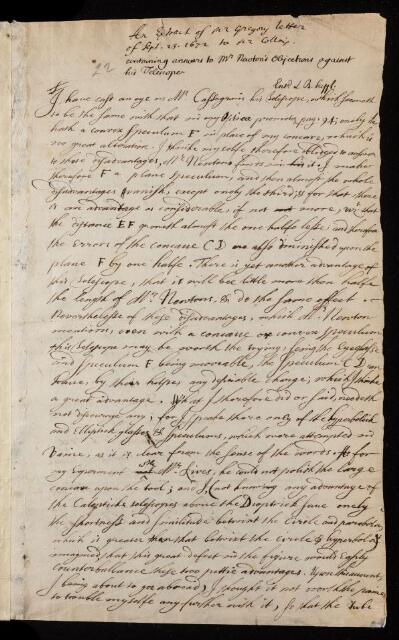 An Extract of Mr Gregory letter
of Sept. 23. 1672 to Mr Collins.
containing answers to Mr Newton's Objections against
his Telescope
22
Entd L.B.
I have cast an eye on Mr. Cassegrain his Telescope, which seemeth
to be the same with that in my Optica promota, pag: 94; only he
hath a convex Speculum F in place of my concave, which is
no great alteration. I thinke my selfe therefore obliged to answer
to those disadvantages, Mr Newton finds in it; I make
therefore F a plane Speculum, and then almost the whole
disadvantages vanish, except only the third; & for that there
is an advantage as considerable, if not more, viz: that
the distance EF groweth almost the one halfe lesse; and therefore
the Errors of the concave CD are also diminished upon the
plane F by one halfe. There is yet another advantage of
this Telescope, that it will bee little more than halfe
the length of Mr. Newtons, & do the same effect.
Neverthelesse of these disadvantages, which Mr. Newton
mentions, even with a concave or convex Speculum
this Telescope may be worth the trying; seing the Eyeglasse
and Speculum F being moveable, the Speculum CD
have, by their helpes any desirable change; which I thinke
a great advantage. What I therefore did or said, needeth
not discourage any; for I speake there only of the hyperbolick
and Elliptick glasses & Speculums, which were attempted in
vaine, as it is clear from the sense of the words. As for
my experiment with Mr. Rives, he could not polish the large
concave upon the tool; and I, (not knowing any advantage of
the Catoptick telescopes above the Dioptrick save onely
the shortness and similitude betwixt the Circle and parabola,
which is greater than that betwixt the circle & hyperbola)
imagined that this great defect in the figure would easily
counterballance these two pettie advantages. Upon this account,
I being about to go abroad, I thought it not worth the paines
to trouble myselfe any further with it, so that the tube